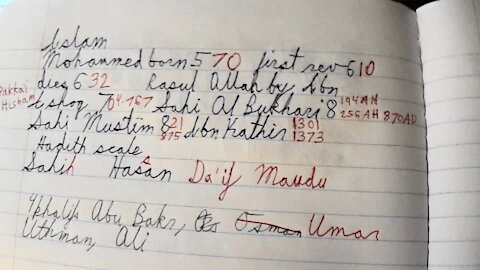 Islam
Mohammed born 570 first rev 610
dies 632 Rasul Allah by Ibn
Hisham Ishaq 704-767 Sahi Al Bukhari 8 194 AH
256 AH 870 AD
Sahi Muslim 821 875 Ibn Kathir 1301
1373
Hadith scale
Sahih Hasan Da'if Maudu
4 khalifs Abu Bakr, Umar
Uthman, Ali